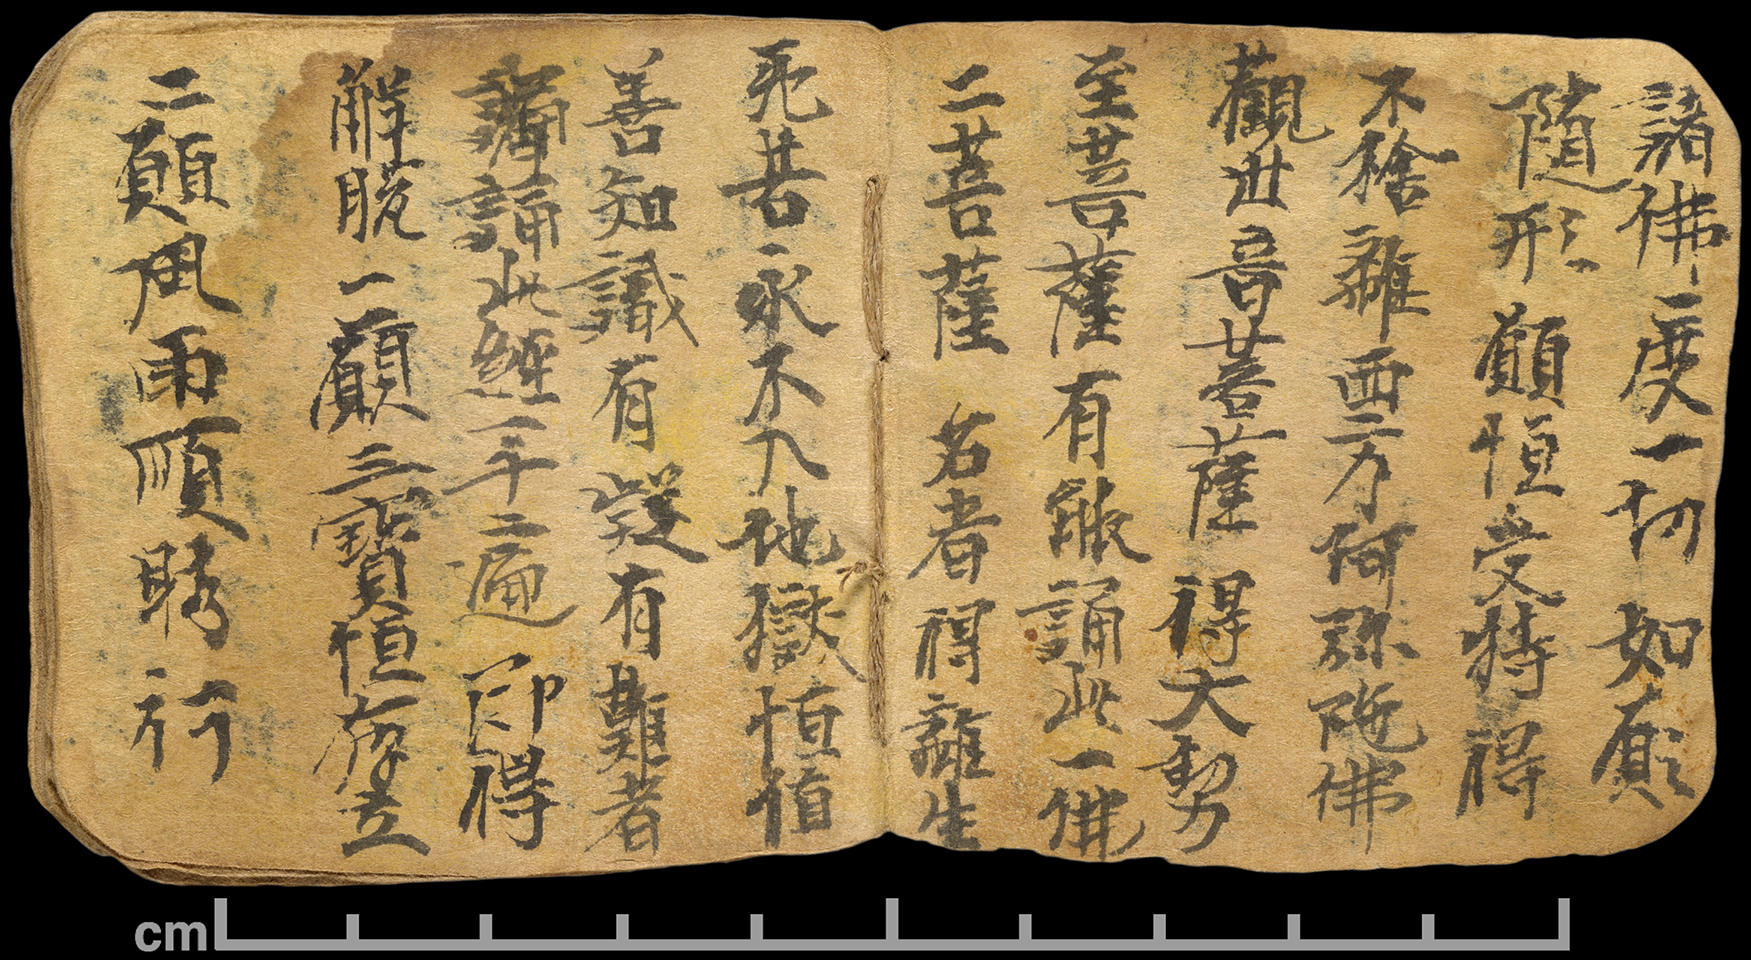 諸佛二度一切如願
隨形願恒受持得
不捨離西方阿弥陁佛
觀世音菩薩得大勢
至菩薩有能誦此一佛
二菩薩名者得離生
死苦永不入地獄恒值
善知識有疑有難者
誦此經一千二遍即得
解脫一願三寶恒存立
二願風雨順時行
cm